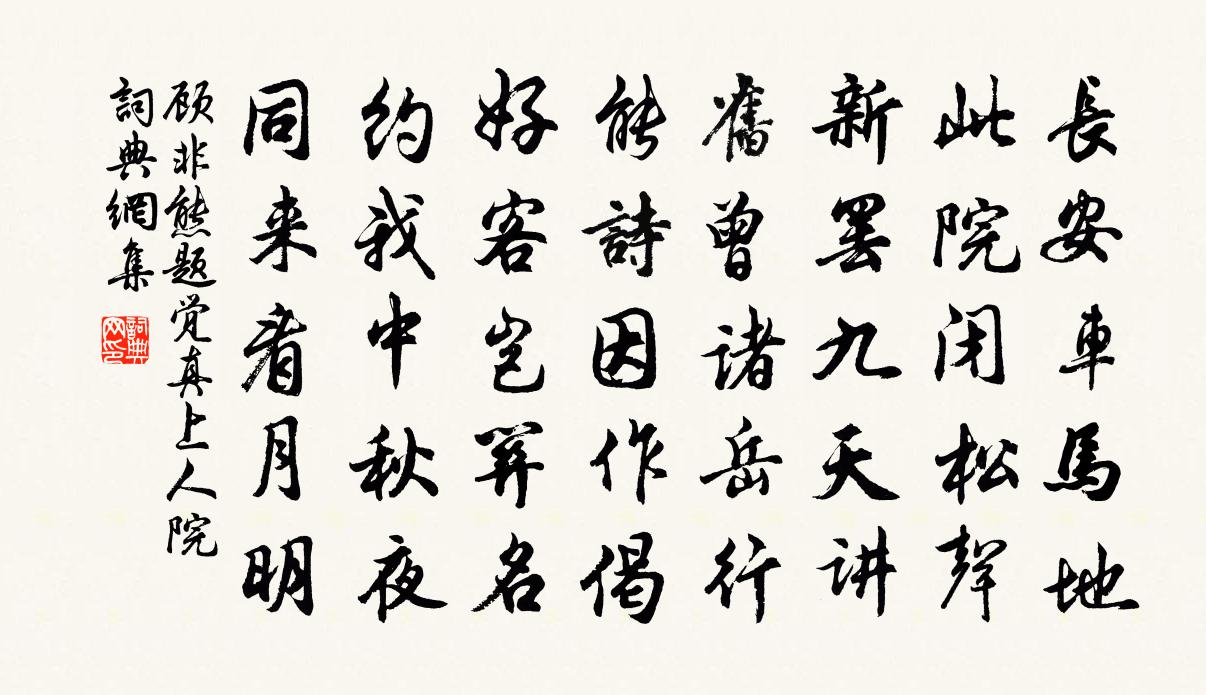 長安車馬地
此院闭松聲
新罢九天讲
舊曾诸岳行
能詩因作偈
好客岂算名
约我中秋夜
同来看月明
顾非熊题觉真上人院
詞典網集
詞典网印